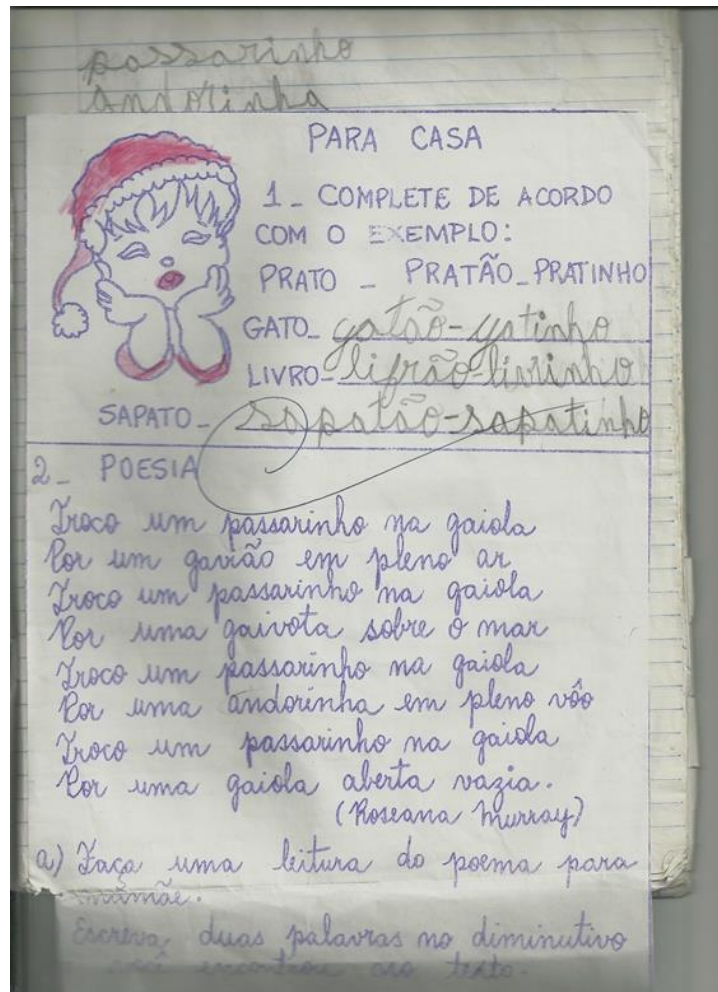 passarinho
andorinha
PARA CASA
1_ COMPLETE DE ACORDO
COM O EXEMPLO:
PRATO _ PRATÃO_PRATINHO
GATO_ gatão-gatinho
LIVRO-lifrão-livrinho
SAPATO_ sapatão-sapatinho
2_ POESIA
Troco um passarinho na gaiola
Por um gavião em pleno ar
Troco um passarinho na gaiola
Por uma gaivota sobre o mar
Troco um passarinho na gaiola
Por uma andorinha em pleno vôo
Troco um passarinho na gaiola
Por uma gaiola aberta vazia.
(Roseana Murray)
a) Faça uma leitura do poema para
mamãe.
Escreva duas palavras no diminutivo
você encontrou no texto.